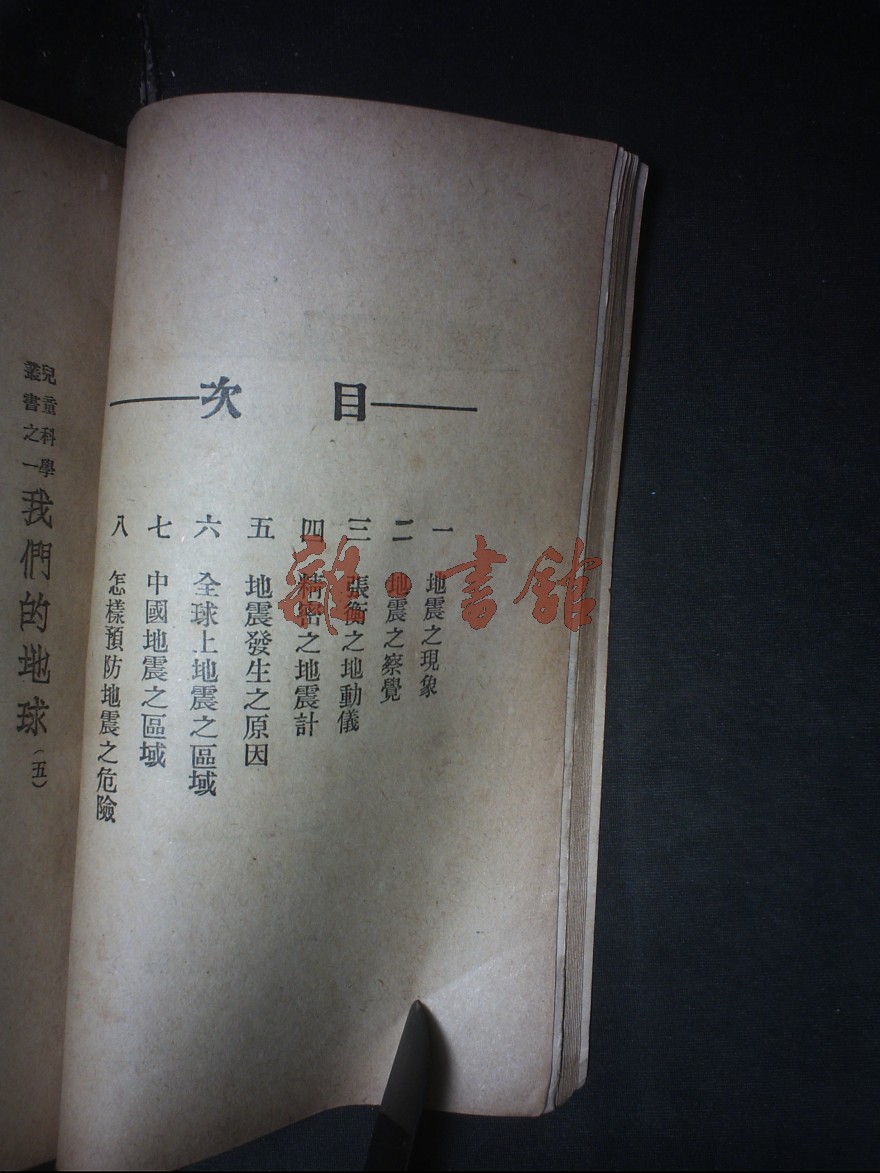 目次
一 地震之現象
二 地震之察覺
三 張衡之地動儀
四 精密之地震計
五 地震發生之原因
六 全球上地震之區域
七 中國地震之區域
八 怎樣預防地震之危險
兒童科學
叢書之一
我們的地球(五)
雜·書館